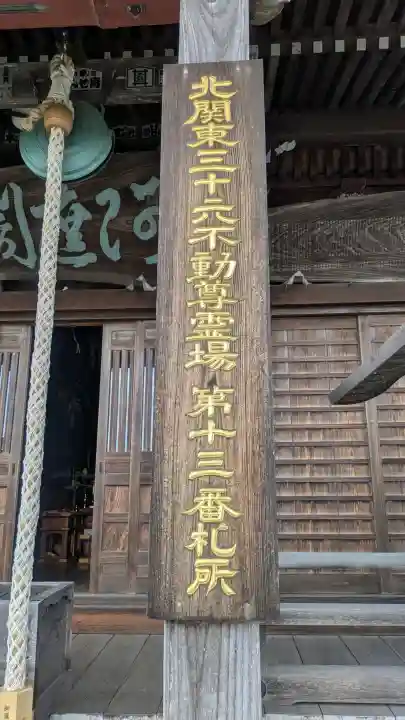 北関東三十六不動尊霊場 第十三番札所